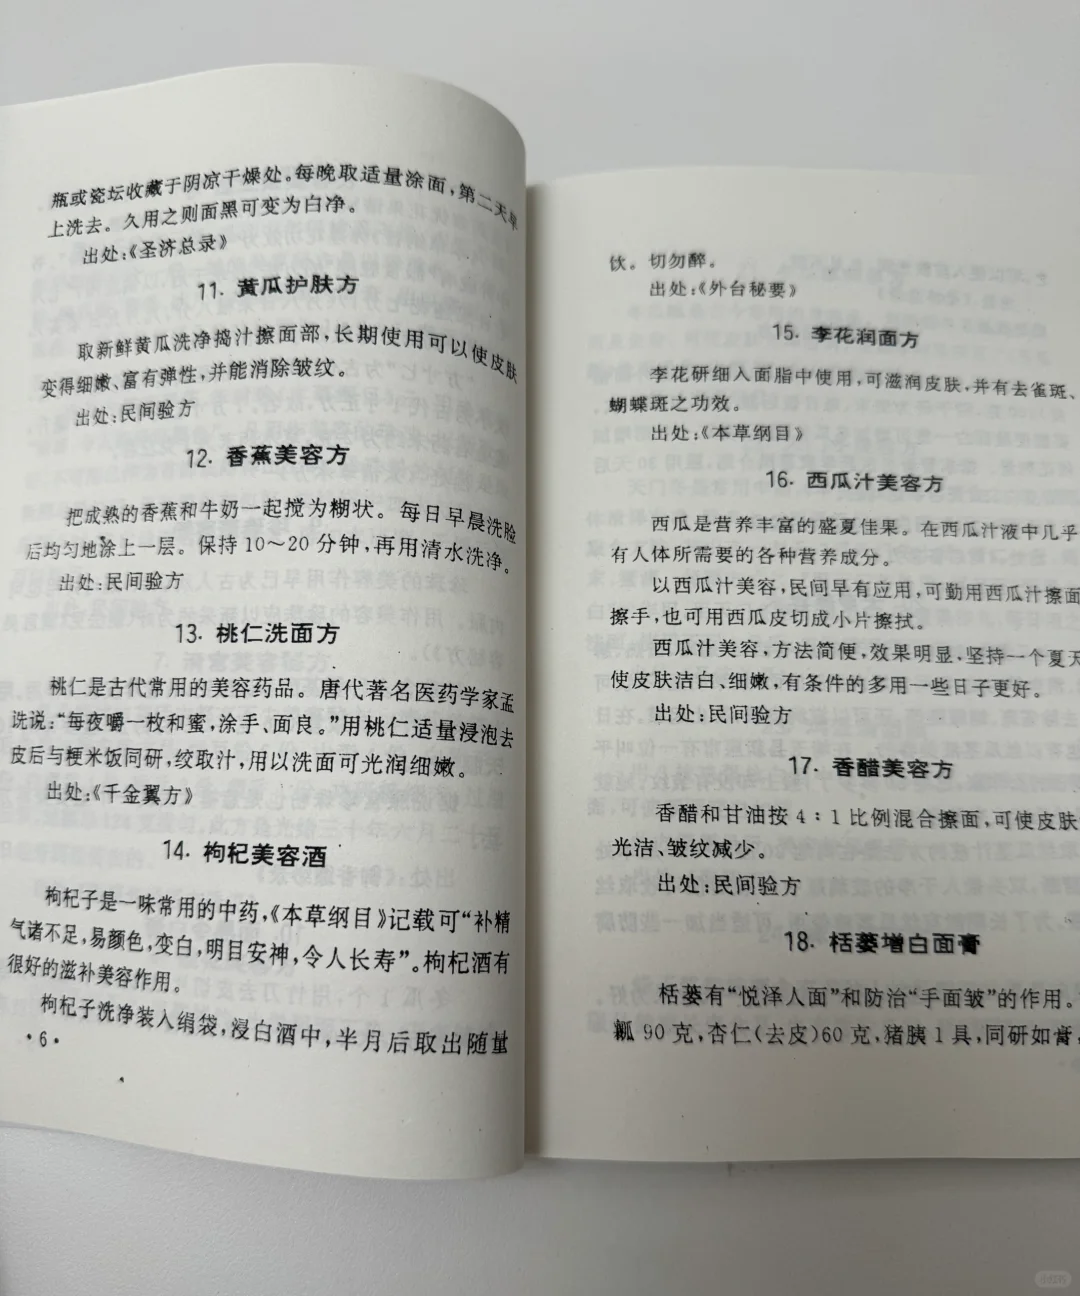 瓶或瓷坛收藏于阴凉干燥处。每晚取适量涂面,第二天早
上洗去。久用之则面黑可变为白净。
出处:《圣济总录》
11. 黄瓜护肤方
取新鲜黄瓜洗净捣汁擦面部,长期使用可以使皮肤
变得细嫩、富有弹性,并能消除皱纹。
出处:民间验方
12. 香蕉美容方
把成熟的香蕉和牛奶一起搅为糊状。每日早晨洗脸
后均匀地涂上一层。保持10～20分钟,再用清水洗净。
出处:民间验方
13. 桃仁洗面方
桃仁是古代常用的美容药品。唐代著名医药学家孟
诜说:“每夜嚼一枚和蜜,涂手、面良。”用桃仁适量浸泡去
皮后与粳米饭同研,绞取汁,用以洗面可光润细嫩。
出处:《千金翼方》
14. 枸杞美容酒
枸杞子是一味常用的中药,《本草纲目》记载可“补精
气诸不足,易颜色,变白,明目安神,令人长寿”。枸杞酒有
很好的滋补美容作用。
枸杞子洗净装入绢袋,浸白酒中,半月后取出随量
·6·
饮。切勿醉。
出处:《外台秘要》
15. 李花润面方
李花研细入面脂中使用,可滋润皮肤,并有去雀斑、
蝴蝶斑之功效。
出处:《本草纲目》
16. 西瓜汁美容方
西瓜是营养丰富的盛夏佳果。在西瓜汁液中几乎
有人体所需要的各种营养成分。
以西瓜汁美容,民间早有应用,可勤用西瓜汁擦面
擦手,也可用西瓜皮切成小片擦拭。
西瓜汁美容,方法简便,效果明显,坚持一个夏天
使皮肤洁白、细嫩,有条件的多用一些日子更好。
出处:民间验方
17. 香醋美容方
香醋和甘油按4∶1比例混合擦面,可使皮肤
光洁、皱纹减少。
出处:民间验方
18. 栝蒌增白面膏
栝蒌有“悦泽人面”和防治“手面皱”的作用。
瓤90克,杏仁(去皮)60克,猪胰1具,同研如膏,